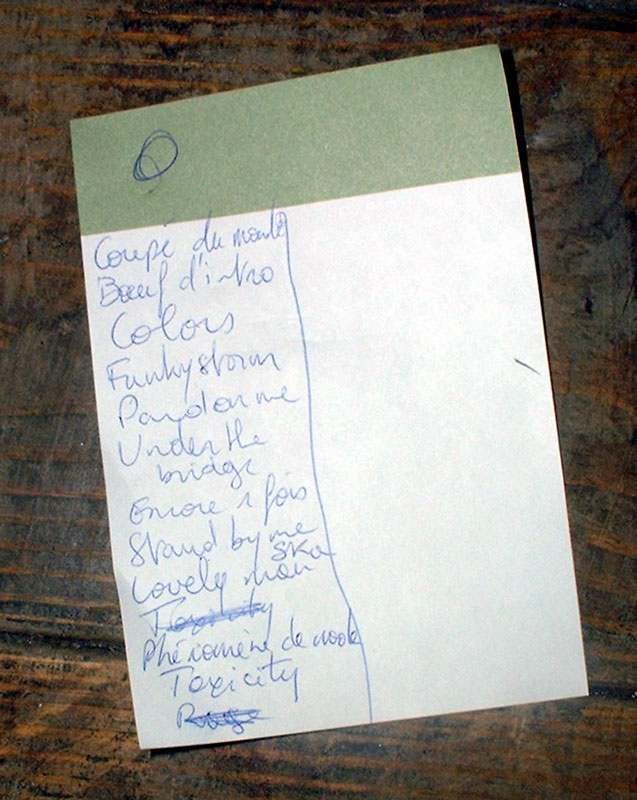 Coupé du monde
Bœuf d'intro
Colors
Funkystorm
Pardon me
Under the
bridge
Encore 1 fois
Stand by me
Ska
Lovely man
Toxicity
Phénomène de mode
Toxicity